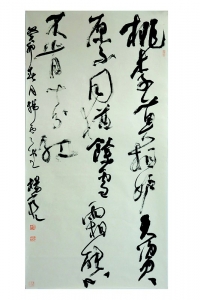 桃李莫相妒夭姿
原不同猶餘雪霜態
未肯十分紅
癸卯春月楊